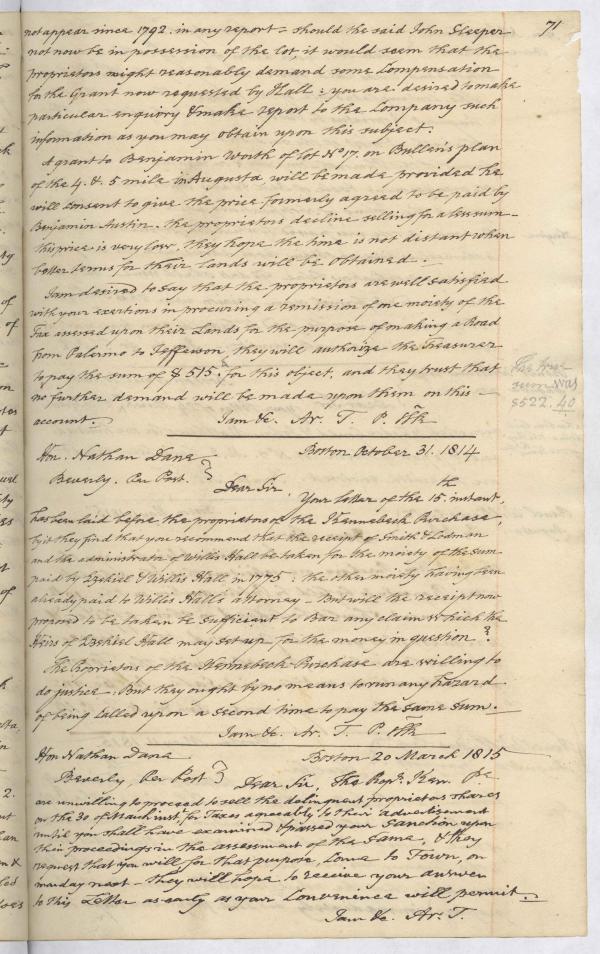 71
not appear since 1792. in any report = should the said John Sleeper
not now be in possession of the lot, it would seem that the
proprietors might reasonably demand some Compensation
for the Grant now requested by Hall = you are desired to make
particular enquiry & make report to the Company such
information as you may obtain upon this subject.
A grant to Benjamin Worth of lot No 17. on Bullen's plan
of the 4. & 5 mile in Augusta, will be made provided he
will consent to give the price formerly agreed to be paid by
Benjamin Austin. the proprietors decline selling for a less sum -
this price is very low, they hope the time is not distant when
better terms for their lands will be obtained.
I am desired to say that the proprietors are well satisfied
with your exertions in procuring a remission of one moiety of the
Tax assessed upon their Lands for the purpose of making a Road
from Palermo to Jefferson, they will authorize the Treasurer
to pay the sum of $ 515. for this object, and they trust that
no further demand will be made upon them on this -
account. I am &c. Ar. T. P. Clk
The true
sum was
$522.40
Hon. Nathan Dane Boston October 31. 1814
Beverly. Per Post. } Dear Sir,
Your letter of the 15.th instant,
has been laid before the proprietors of the Kennebeck Purchase,
by it they find that you recommend that the receipt of Smith & Lodman
and the administrator of Willis Hall be taken for the moiety of the sum
paid by Ezekiel & Willis Hall in 1775 : the other moiety having been
already paid to Willis Hall's attorney - But will the receipt now
proposed to be taken be sufficient to Bar any claim which the
Heirs of Ezekiel Hall may set up for the money in question ?
The Proprietors of the Kennebeck Purchase are willing to
do justice. But they ought by no means to run any hazard
of being called upon a second time to pay the same sum. -
I am &c. Ar. T. P. Clk
Hon Nathan Dane Boston 20 March 1815
Beverly Per Post } Dear Sir The Propr. Ken. Pe
are unwilling to proceed to sell the delinquent proprietors shares
on the 30 of March inst. for Taxes agreeably to their advertisement
until you shall have examined & passed your Sanction upon
their proceedings in the assessment of the same, & they
request that you will for that purpose, Come to Town, on
monday next - they will hope to receive your answer
to this Letter as early as your Convenience will permit. -
I am &c. Ar. T.